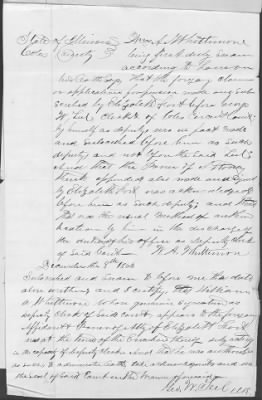 State of Illinois
Coles County
Wm A Whittemore
being first duly sworn
according to Law on
his oath says that the foregoing claim
or application purporting made and sub
scribed by Elizabeth Fort before George
W Teel Clerk of Coles County Court
by himself as deputy was in fact made
and subscribed before him as such
deputy and not before the said Teel
and that the Power of Attorney
thereto appended also made and signed
by Elizabeth Fort was acknowledged
before him as such deputy; and that
this was the usual method of authen
tication by him in the discharge of
the duties of his office as deputy clerk
of said Court
W. A. Whittemore
December 8th
Subscribed and sworn to before me this date
above written and I certify that William
A Whittemore whose genuine signature as
deputy clerk of said court appears to the foregoing
Affidavit & Power of Atty of Elizabeth Fort
was at the time of the execution thereof acting
in the capacity of deputy clerk and that he was authorized
as such to administer oaths take acknowledgments and use
the seal of said Court in the manner
Geo. W. Teel clerk